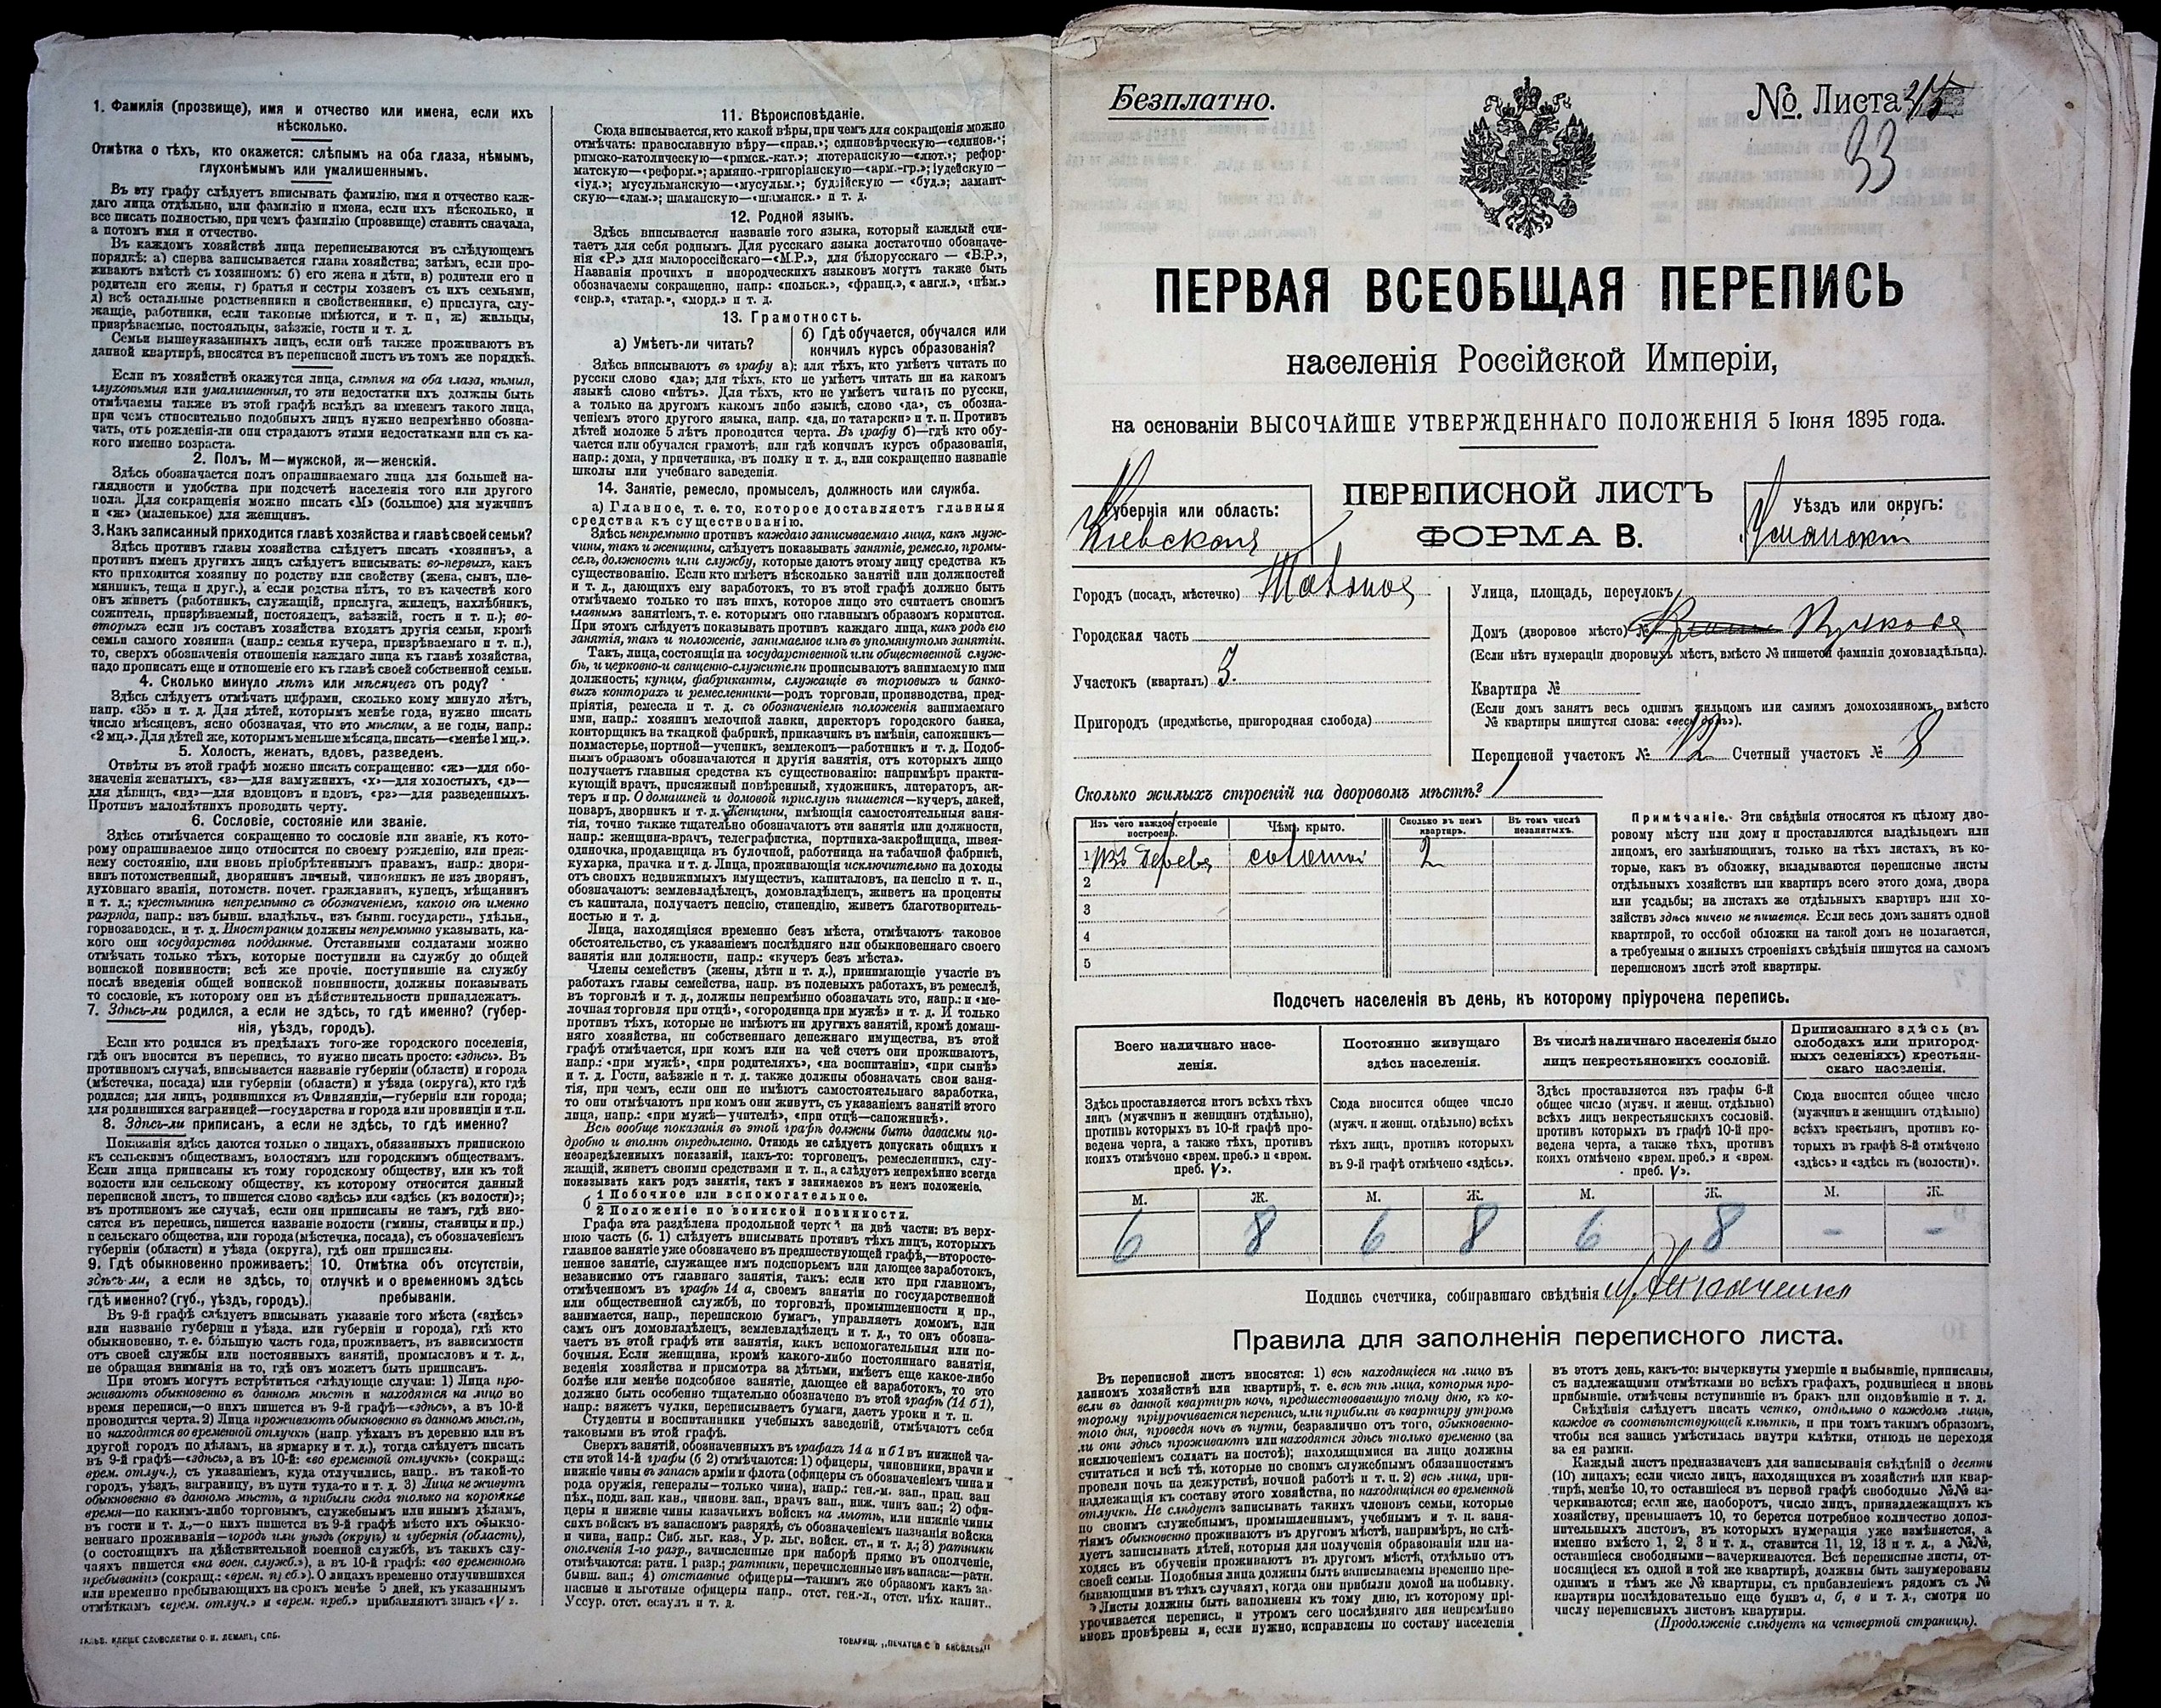 1. Фамилія (прозвище), имя и отчество или имена, если ихъ
нѣсколько.
Отмѣтка о тѣхъ, кто окажется: слѣпымъ на оба глаза, нѣмымъ,
глухонѣмымъ или умалишеннымъ.
Въ эту графу слѣдуетъ вписывать фамилію, имя и отчество каж-
даго лица отдѣльно, или фамилію и имена, если ихъ нѣсколько, и
все писать полностью, при чемъ фамилію (прозвище) ставить сначала,
а потомъ имя и отчество.
Въ каждомъ хозяйствѣ лица переписываются въ слѣдующемъ
порядкѣ: а) сперва записывается глава хозяйства; затѣмъ, если про-
живаютъ вмѣстѣ съ хозяиномъ: б) его жена и дѣти, в) родители его и
родители его жены, г) братья и сестры хозяевъ съ ихъ семьями,
д) всѣ остальные родственники и свойственники, е) прислуга, слу-
жащіе, работники, если таковые имѣются, и т. п., ж) жильцы,
призрѣваемые, постояльцы, заѣзжіе, гости и т. д.
Семьи вышеуказанныхъ лицъ, если онѣ также проживаютъ въ
данной квартирѣ, вносятся въ переписной листъ въ томъ же порядкѣ.
Если въ хозяйствѣ окажутся лица, слѣпыя на оба глаза, нѣмыя,
глухонѣмыя или умалишенныя, то эти недостатки ихъ должны быть
отмѣчаемы также въ этой графѣ вслѣдъ за именемъ такого лица,
при чемъ относительно подобныхъ лицъ нужно непремѣнно обозна-
чать, отъ рожденія-ли они страдаютъ этими недостатками или съ ка-
кого именно возраста.
2. Полъ. М—мужской, ж—женскій.
Здѣсь обозначается полъ опрашиваемаго лица для большей на-
глядности и удобства при подсчетѣ населенія того или другого
пола. Для сокращенія можно писать «М» (большое) для мужчинъ
и «ж» (маленькое) для женщинъ.
3. Какъ записанный приходится главѣ хозяйства и главѣ своей семьи?
Здѣсь противъ главы хозяйства слѣдуетъ писать «хозяинъ», а
противъ именъ другихъ лицъ слѣдуетъ вписывать: во-первыхъ, какъ
кто приходится хозяину по родству или свойству (жена, сынъ, пле-
мянникъ, теща и друг.), а если родства нѣтъ, то въ качествѣ кого
онъ живетъ (работникъ, служащій, прислуга, жилецъ, нахлѣбникъ,
сожитель, призрѣваемый, постоялецъ, заѣзжій, гость и т. п.); во-
вторыхъ если въ составъ хозяйства входятъ другія семьи, кромѣ
семьи самого хозяина (напр.: семья кучера, призрѣваемаго и т. п.),
то, сверхъ обозначенія отношенія каждаго лица къ главѣ хозяйства,
надо прописать еще и отношеніе его къ главѣ своей собственной семьи.
4. Сколько минуло лѣтъ или мѣсяцевъ отъ роду?
Здѣсь слѣдуетъ отмѣчать цифрами, сколько кому минуло лѣтъ,
напр. «35» и т. д. Для дѣтей, которымъ менѣе года, нужно писать
число мѣсяцевъ, ясно обозначая, что это мѣсяцы, а не годы, напр.:
«2 мц.». Для дѣтей же, которымъ меньше мѣсяца, писать—«менѣе 1 мц.».
5. Холостъ, женатъ, вдовъ, разведенъ.
Отвѣты въ этой графѣ можно писать сокращенно: «ж»—для обо-
значенія женатыхъ, «з»—для замужнихъ, «х»—для холостыхъ, «д»—
для дѣвицъ, «вд»—для вдовцовъ и вдовъ, «рз»—для разведенныхъ.
Противъ малолѣтнихъ проводить черту.
6. Сословіе, состояніе или званіе.
Здѣсь отмѣчается сокращенно то сословіе или званіе, къ кото-
рому опрашиваемое лицо относится по своему рожденію, или преж-
нему состоянію, или вновь пріобрѣтеннымъ правамъ, напр.: дворя-
нинъ потомственный, дворянинъ личный, чиновникъ не изъ дворянъ,
духовнаго званія, потомств. почет. гражданинъ, купецъ, мѣщанинъ
и т. д.; крестьянинъ непремѣнно съ обозначеніемъ, какого онъ именно
разряда, напр.: изъ бывш. владѣльч., изъ бывш. государств., удѣльн.,
горнозаводск., и т. д. Иностранцы должны непремѣнно указывать, ка-
кого они государства подданные. Отставными солдатами можно
отмѣчать только тѣхъ, которые поступили на службу до общей
воинской повинности; всѣ же прочіе, поступившіе на службу
послѣ введенія общей воинской повинности, должны показывать
то сословіе, къ которому они въ дѣйствительности принадлежатъ.
7. Здѣсь-ли родился, а если не здѣсь, то гдѣ именно? (губер-
нія, уѣздъ, городъ).
Если кто родился въ предѣлахъ того-же городского поселенія,
гдѣ онъ вносится въ перепись, то нужно писать просто: «здѣсь». Въ
противномъ случаѣ, вписывается названіе губерніи (области) и города
(мѣстечка, посада) или губерніи (области) и уѣзда (округа), кто гдѣ
родился; для лицъ, родившихся въ Финляндіи,—губерніи или города;
для родившихся заграницей—государства и города или провинціи и т.п.
8. Здѣсь-ли приписанъ, а если не здѣсь, то гдѣ именно?
Показанія здѣсь даются только о лицахъ, обязанныхъ припискою
къ сельскимъ обществамъ, волостямъ или городскимъ обществамъ.
Если лица приписаны къ тому городскому обществу, или къ той
волости или сельскому обществу, къ которому относится данный
переписной листъ, то пишется слово «здѣсь» или «здѣсь (къ волости)»;
въ противномъ же случаѣ, если они приписаны не тамъ, гдѣ вно-
сятся въ перепись, пишется названіе волости (гмины, станицы и пр.)
и сельскаго общества, или города (мѣстечка, посада), съ обозначеніемъ
губерніи (области) и уѣзда (округа), гдѣ они приписаны.
9. Гдѣ обыкновенно проживаетъ: здѣсь-ли, а если не здѣсь, то гдѣ именно? (губ., уѣздъ, городъ).
10. Отмѣтка объ отсутствіи, отлучкѣ и о временномъ здѣсь пребываніи.
Въ 9-й графѣ слѣдуетъ вписывать указаніе того мѣста («здѣсь»
или названіе губерніи и уѣзда, или губерніи и города), гдѣ кто
обыкновенно, т. е. большую часть года, проживаетъ, въ зависимости
отъ своей службы или постоянныхъ занятій, промысловъ и т. д.,
не обращая вниманія на то, гдѣ онъ можетъ быть приписанъ.
При этомъ могутъ встрѣтиться слѣдующіе случаи: 1) Лица про-
живаютъ обыкновенно въ данномъ мѣстѣ и находятся на лицо во
время переписи,—о нихъ пишется въ 9-й графѣ—«здѣсь», а въ 10-й
проводится черта. 2) Лица проживаютъ обыкновенно въ данномъ мѣстѣ,
но находятся во временной отлучкѣ (напр. уѣхалъ въ деревню или въ
другой городъ по дѣламъ, на ярмарку и т. д.), тогда слѣдуетъ писать
въ 9-й графѣ—«здѣсь», а въ 10-й: «во временной отлучкѣ» (сокращ.:
врем. отлуч.), съ указаніемъ, куда отлучились, напр.. въ такой-то
городъ, уѣздъ, заграницу, въ пути туда-то и т. д. 3) Лица не живутъ
обыкновенно въ данномъ мѣстѣ, а прибыли сюда только на короткое
время—по какимъ-либо торговымъ, служебнымъ или инымъ дѣламъ,
въ гости и т. д.,—о нихъ пишется въ 9-й графѣ мѣсто ихъ обыкно-
веннаго проживанія—городъ или уѣздъ (округъ) и губернія (область),
(о состоящихъ на дѣйствительной военной службѣ, въ такихъ слу-
чаяхъ пишется «на воен. служб.»), а въ 10-й графѣ: «во временномъ
пребываніи» (сокращ.: «врем. преб.»). О лицахъ временно отлучившихся
или временно пребывающихъ на срокъ менѣе 5 дней, къ указаннымъ
отмѣткамъ «врем. отлуч.» и «врем. преб.» прибавляютъ знакъ «V».
ГАЛЬВ. КЛИШЕ СЛОВОЛИТНИ О. И. ЛЕМАНЪ, СПБ.
11. Вѣроисповѣданіе.
Сюда вписывается, кто какой вѣры, при чемъ для сокращенія можно
отмѣчать: православную вѣру—«прав.»; единовѣрческую—«единов.»;
римско-католическую—«римск.-кат.»; лютеранскую—«лют.»; рефор-
матскую—«реформ.»; армяно-григоріанскую—«арм.-гр.»; іудейскую—
«іуд.»; мусульманскую—«мусульм.»; буддійскую — «буд.»; ламаит-
скую—«лам.»; шаманскую—«шаманск.» и т. д.
12. Родной языкъ.
Здѣсь вписывается названіе того языка, который каждый счи-
таетъ для себя роднымъ. Для русскаго языка достаточно обозначе-
нія «Р.» для малороссійскаго—«М.Р.», для бѣлорусскаго — «Б.Р.»,
Названія прочихъ и инородческихъ языковъ могутъ также быть
обозначаемы сокращенно, напр.: «польск.», «франц.», « англ.», «нѣм.»
«сир.», «татар.», «морд.» и т. д.
13. Грамотность.
а) Умѣетъ-ли читать?
б) Гдѣ обучается, обучался или
кончилъ курсъ образованія?
Здѣсь вписываютъ въ графу а): для тѣхъ, кто умѣетъ читать по
русски слово «да»; для тѣхъ, кто не умѣетъ читать ни на какомъ
языкѣ слово «нѣтъ». Для тѣхъ, кто не умѣетъ читать по русски,
а только на другомъ какомъ либо языкѣ, слово «да», съ обозна-
ченіемъ этого другого языка, напр. «да, по татарски» и т. п. Противъ
дѣтей моложе 5 лѣтъ проводится черта. Въ графу б)—гдѣ кто обу-
чается или обучался грамотѣ, или гдѣ кончилъ курсъ образованія,
напр.: дома, у причетника, въ полку и т. д., или сокращенно названіе
школы или учебнаго заведенія.
14. Занятіе, ремесло, промыселъ, должность или служба.
а) Главное, т. е. то, которое доставляетъ главныя
средства къ существованію.
Здѣсь непремѣнно противъ каждаго записываемаго лица, какъ муж-
чины, такъ и женщины, слѣдуетъ показывать занятіе, ремесло, промы-
селъ, должность или службу, которые даютъ этому лицу средства къ
существованію. Если кто имѣетъ нѣсколько занятій или должностей
и т. д., дающихъ ему заработокъ, то въ этой графѣ должно быть
отмѣчаемо только то изъ нихъ, которое лицо это считаетъ своимъ
главнымъ занятіемъ, т. е. которымъ оно главнымъ образомъ кормится.
При этомъ слѣдуетъ показывать противъ каждаго лица, какъ родъ его
занятія, такъ и положеніе, занимаемое имъ въ упомянутомъ занятіи.
Такъ, лица, состоящія на государственной или общественной служ-
бѣ, и церковно-и священно-служители прописываютъ занимаемую ими
должность; купцы, фабриканты, служащіе въ торговыхъ и банко-
выхъ конторахъ и ремесленники—родъ торговли, производства, пред-
пріятія, ремесла и т. д. съ обозначеніемъ положенія занимаемаго
ими, напр.: хозяинъ мелочной лавки, директоръ городского банка,
конторщикъ на ткацкой фабрикѣ, приказчикъ въ имѣніи, сапожникъ—
подмастерье, портной—ученикъ, землекопъ—работникъ и т. д. Подоб-
нымъ образомъ обозначаются и другія занятія, отъ которыхъ лицо
получаетъ главныя средства къ существованію: напримѣръ практи-
кующій врачъ, присяжный повѣренный, художникъ, литераторъ, ак-
теръ и пр. О домашней и домовой прислугѣ пишется—кучеръ, лакей,
поваръ, дворникъ и т. д. Женщины, имѣющія самостоятельныя заня-
тія, точно также тщательно обозначаютъ эти занятія или должности,
напр.: женщина-врачъ, телеграфистка, портниха-закройщица, швея-
одиночка, продавщица въ булочной, работница на табачной фабрикѣ,
кухарка, прачка и т. д. Лица, проживающія исключительно на доходы
отъ своихъ недвижимыхъ имуществъ, капиталовъ, на пенсію и т. п.,
обозначаютъ: землевладѣлецъ, домовладѣлецъ, живетъ на проценты
съ капитала, получаетъ пенсію, стипендію, живетъ благотворитель-
ностью и т. д.
Лица, находящіяся временно безъ мѣста, отмѣчаютъ таковое
обстоятельство, съ указаніемъ послѣдняго или обыкновеннаго своего
занятія или должности, напр.: «кучеръ безъ мѣста».
Члены семействъ (жены, дѣти и т. д.), принимающіе участіе въ
работахъ главы семейства, напр. въ полевыхъ работахъ, въ ремеслѣ,
въ торговлѣ и т. д., должны непремѣнно обозначать это, напр.: и «ме-
лочная торговля при отцѣ», «огородница при мужѣ» и т. д. И только
противъ тѣхъ, которые не имѣютъ ни другихъ занятій, кромѣ домаш-
няго хозяйства, ни собственнаго денежнаго имущества, въ этой
графѣ отмѣчается, при комъ или на чей счетъ они проживаютъ,
напр.: «при мужѣ», «при родителяхъ», «на воспитаніи», «при сынѣ»
и т. д. Гости, заѣзжіе и т. д. также должны обозначать свои заня-
тія, при чемъ, если они не имѣютъ самостоятельнаго заработка,
то они отмѣчаютъ при комъ они живутъ, съ указаніемъ занятій этого
лица, напр.: «при мужѣ—учителѣ», «при отцѣ—сапожникѣ».
Всѣ вообще показанія въ этой графѣ должны быть даваемы по-
дробно и вполнѣ опредѣленно. Отнюдь не слѣдуетъ допускать общихъ и
неопредѣленныхъ показаній, какъ-то: торговецъ, ремесленникъ, слу-
жащій, живетъ своими средствами и т. п., а слѣдуетъ непремѣнно всегда
показывать какъ родъ занятія, такъ и занимаемое въ немъ положеніе.
б 1 Побочное или вспомогательное.
2 Положеніе по воинской повинности.
Графа эта раздѣлена продольной чертой на двѣ части: въ верх-
нюю часть (б. 1) слѣдуетъ вписывать противъ тѣхъ лицъ, которыхъ
главное занятіе уже обозначено въ предшествующей графѣ,—второсте-
пенное занятіе, служащее имъ подспорьемъ или дающее заработокъ,
независимо отъ главнаго занятія, такъ: если кто при главномъ,
отмѣченномъ въ графѣ 14 а, своемъ занятіи по государственной
или общественной службѣ, по торговлѣ, промышленности и пр.,
занимается, напр., перепискою бумагъ, управляетъ домомъ, или
самъ онъ домовладѣлецъ, землевладѣлецъ и т. д., то онъ обозна-
чаетъ въ этой графѣ эти занятія, какъ вспомогательныя или по-
бочныя. Если женщина, кромѣ какого-либо постояннаго занятія,
веденія хозяйства и присмотра за дѣтьми, имѣетъ еще какое-либо
болѣе или менѣе подсобное занятіе, дающее ей заработокъ, то это
должно быть особенно тщательно обозначено въ этой графѣ (14 б 1),
напр.: вяжетъ чулки, переписываетъ бумаги, даетъ уроки и т. п.
Студенты и воспитанники учебныхъ заведеній, отмѣчаютъ себя
таковыми въ этой графѣ.
Сверхъ занятій, обозначенныхъ въ графахъ 14 а и б 1 въ нижней ча-
сти этой 14-й графы (б 2) отмѣчаются: 1) офицеры, чиновники, врачи и
нижніе чины въ запасѣ арміи и флота (офицеры съ обозначеніемъ чина и
рода оружія, генералы—только чина), напр.: ген.-м. зап., прап. зап
пѣх., подп. зап. кав., чиновн. зап., врачъ зап., ниж. чинъ зап.; 2) офи-
церы и нижніе чины казачьихъ войскъ на льготѣ, или нижніе чины
сихъ войскъ въ запасномъ разрядѣ, съ обозначеніемъ названія войска
и чина, напр.: Сиб. льг. каз., Ур. льг. войск. ст., и т. д.; 3) ратники
ополченія 1-го разр., зачисленные при наборѣ прямо въ ополченіе,
отмѣчаются: ратн. 1 разр.; ратники, перечисленные изъ запаса:—ратн.
бывш. зап.; 4) отставные офицеры—такимъ же образомъ какъ за-
пасные и льготные офицеры напр.. отст. ген.-л., отст. пѣх. капит.,
Уссур. отст. есаулъ и т. д.
ТОВАРИЩ. „ПЕЧАТНЯ С. П. ЯКОВЛЕВА"
Безплатно.
№ Листа
33
ПЕРВАЯ ВСЕОБЩАЯ ПЕРЕПИСЬ
населенія Россійской Имперіи,
на основаніи ВЫСОЧАЙШЕ УТВЕРЖДЕННАГО ПОЛОЖЕНІЯ 5 Іюня 1895 года.
Губернія или область:
Кіевская
ПЕРЕПИСНОЙ ЛИСТЪ
ФОРМА В.
Уѣздъ или округъ:
Уманскій
Городъ (посадъ, мѣстечко)
Городская часть
Участокъ (кварталъ) 3.
Пригородъ (предмѣстье, пригородная слобода)
Улица, площадь, переулокъ
Домъ (дворовое мѣсто) №
(Если нѣтъ нумераціи дворовыхъ мѣстъ, вмѣсто № пишется фамилія домовладѣльца).
Квартира №
(Если домъ занятъ весь однимъ жильцомъ или самимъ домохозяиномъ, вмѣсто
№ квартиры пишутся слова: «весь домъ»).
Переписной участокъ № 12 Счетный участокъ № 8
Сколько жилыхъ строеній на дворовомъ мѣстѣ? 1
Изъ чего каждое строеніе построено.
Чѣмъ крыто.
Сколько въ немъ квартиръ.
Въ томъ числѣ незанятыхъ.
1 изъ дерева соломой 2
2
3
4
5
Примѣчаніе. Эти свѣдѣнія относятся къ цѣлому дво-
ровому мѣсту или дому и проставляются владѣльцемъ или
лицомъ, его замѣняющимъ, только на тѣхъ листахъ, въ ко-
торые, какъ въ обложку, вкладываются переписные листы
отдѣльныхъ хозяйствъ или квартиръ всего этого дома, двора
или усадьбы; на листахъ же отдѣльныхъ квартиръ или хо-
зяйствъ здѣсь ничего не пишется. Если весь домъ занятъ одной
квартирой, то особой обложки на такой домъ не полагается,
а требуемыя о жилыхъ строеніяхъ свѣдѣнія пишутся на самомъ
переписномъ листѣ этой квартиры.
Подсчетъ населенія въ день, къ которому пріурочена перепись.
Всего наличнаго насе-
ленія.
Постоянно живущаго
здѣсь населенія.
Въ числѣ наличнаго населенія было
лицъ некрестьянскихъ сословій.
Приписаннаго здѣсь (въ
слободахъ или пригород-
ныхъ селеніяхъ) крестьян-
скаго населенія.
Здѣсь проставляется итогъ всѣхъ тѣхъ
лицъ (мужчинъ и женщинъ отдѣльно),
противъ которыхъ въ 10-й графѣ про-
ведена черта, а также тѣхъ, противъ
коихъ отмѣчено «врем. преб.» и «врем.
преб. V».
Сюда вносится общее число
(мужч. и женщ. отдѣльно) всѣхъ
тѣхъ лицъ, противъ которыхъ
въ 9-й графѣ отмѣчено «здѣсь».
Здѣсь проставляется изъ графы 6-й
общее число (мужч. и женщ. отдѣльно)
всѣхъ лицъ некрестьянскихъ сословій.
противъ которыхъ въ графѣ 10-й про-
ведена черта, а также тѣхъ, противъ
коихъ отмѣчено «врем. преб.» и «врем.
преб. V».
Сюда вносится общее число
(мужчинъ и женщинъ отдѣльно)
всѣхъ крестьянъ, противъ ко-
торыхъ въ графѣ 8-й отмѣчено
«здѣсь» и «здѣсь къ (волости)».
М. Ж. М. Ж. М. Ж. М. Ж.
6 8 6 8 6 8 - -
Подпись счетчика, собиравшаго свѣдѣнія
Правила для заполненія переписного листа.
Въ переписной листъ вносятся: 1) всѣ находящіеся на лицо въ
данномъ хозяйствѣ или квартирѣ, т. е. всѣ тѣ лица, которыя про-
вели въ данной квартирѣ ночь, предшествовавшую тому дню, къ ко-
торому пріурочивается перепись, или прибыли въ квартиру утромъ
того дня, проведя ночь въ пути, безразлично отъ того, обыкновенно-
ли они здѣсь проживаютъ или находятся здѣсь только временно (за
исключеніемъ солдатъ на постоѣ); находящимися на лицо должны
считаться и всѣ тѣ, которые по своимъ служебнымъ обязанностямъ
провели ночь на дежурствѣ, ночной работѣ и т. п. 2) всѣ лица, при-
надлежащія къ составу этого хозяйства, но находящіяся во временной
отлучкѣ. Не слѣдуетъ записывать такихъ членовъ семьи, которые
по своимъ служебнымъ, промышленнымъ, учебнымъ и т. п. заня-
тіямъ обыкновенно проживаютъ въ другомъ мѣстѣ, напримѣръ, не слѣ-
дуетъ записывать дѣтей, которыя для полученія образованія или на-
ходясь въ обученіи проживаютъ въ другомъ мѣстѣ, отдѣльно отъ
своей семьи. Подобныя лица должны быть вписываемы временно пре-
бывающими въ тѣхъ случаяхъ, когда они прибыли домой на побывку.
Листы должны быть заполнены къ тому дню, къ которому прі-
урочивается перепись, и утромъ сего послѣдняго дня непремѣнно
вновь провѣрены и, если нужно, исправлены по составу населенія
въ этотъ день, какъ-то: вычеркнуты умершіе и выбывшіе, приписаны,
съ надлежащими отмѣтками во всѣхъ графахъ, родившіеся и вновь
прибывшіе. отмѣчены вступившіе въ бракъ или овдовѣвшіе и т. д.
Свѣдѣнія слѣдуетъ писать четко, отдѣльно о каждомъ лицѣ,
каждое въ соотвѣтствующей клѣткѣ, и при томъ такимъ образомъ,
чтобы вся запись умѣстилась внутри клѣтки, отнюдь не переходя
за ея рамки.
Каждый листъ предназначенъ для записыванія свѣдѣній о десяти
(10) лицахъ; если число лицъ, находящихся въ хозяйствѣ или квар-
тирѣ, менѣе 10, то оставшіеся въ первой графѣ свободные №№ за-
черкиваются; если же, наоборотъ, число лицъ, принадлежащихъ къ
хозяйству, превышаетъ 10, то берется потребное количество допол-
нительныхъ листовъ, въ которыхъ нумерація уже измѣняется, а
именно вмѣсто 1, 2, 3 и т. д., ставится 11, 12, 13 и т. д., а №№,
оставшіеся свободными—вычеркиваются. Всѣ переписные листы, от-
носящіеся къ одной и той же квартирѣ, должны быть занумерованы
однимъ и тѣмъ же № квартиры, съ прибавленіемъ рядомъ съ №
квартиры послѣдовательно еще буквъ а, б, в и т. д., смотря по
числу переписныхъ листовъ квартиры.
(Продолженіе слѣдуетъ на четвертой страницѣ).